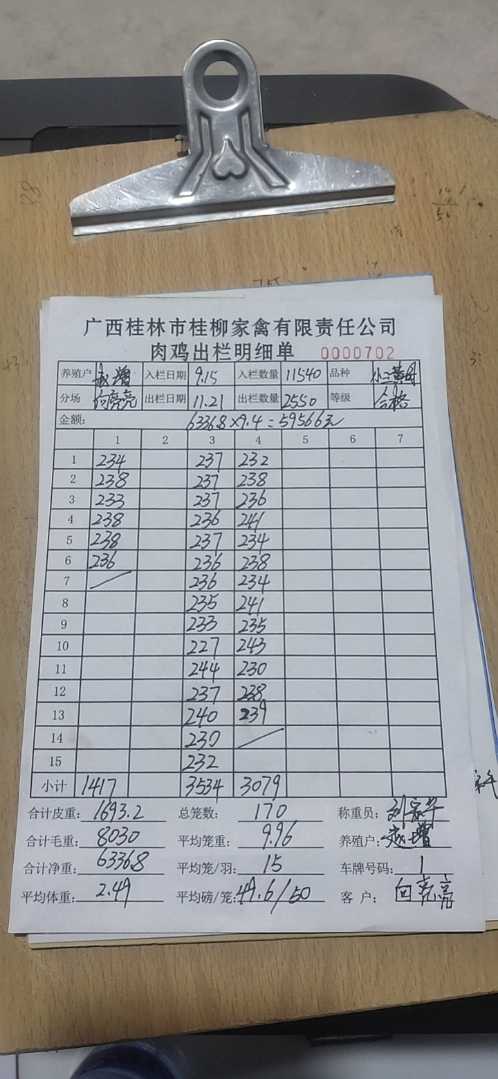 广西桂林市桂柳家禽有限责任公司
肉鸡出栏明细单 0000702
养殖户 赵增 入栏日期 9.15 入栏数量 11540 品种
分场 向亮亮 出栏日期 11.21 出栏数量 2550 等级 合格
金额: 6336.8×9.4=59566元
1 2 3 4 5 6 7
1 234 237 232
2 238 237 238
3 233 237 236
4 238 236 241
5 238 237 234
6 236 236 238
7 236 234
8 235 241
9 233 235
10 227 243
11 244 230
12 237 238
13 240 239
14 230
15 232
小计 1417 3534 3079
合计皮重: 1693.2 总笼数: 170 称重员:
合计毛重: 8030 平均笼重: 9.96 养殖户: 赵增
合计净重: 6336.8 平均笼/羽: 15 车牌号码: 1
平均体重: 2.49 平均磅/笼: 49.6/50 客户: 向亮亮